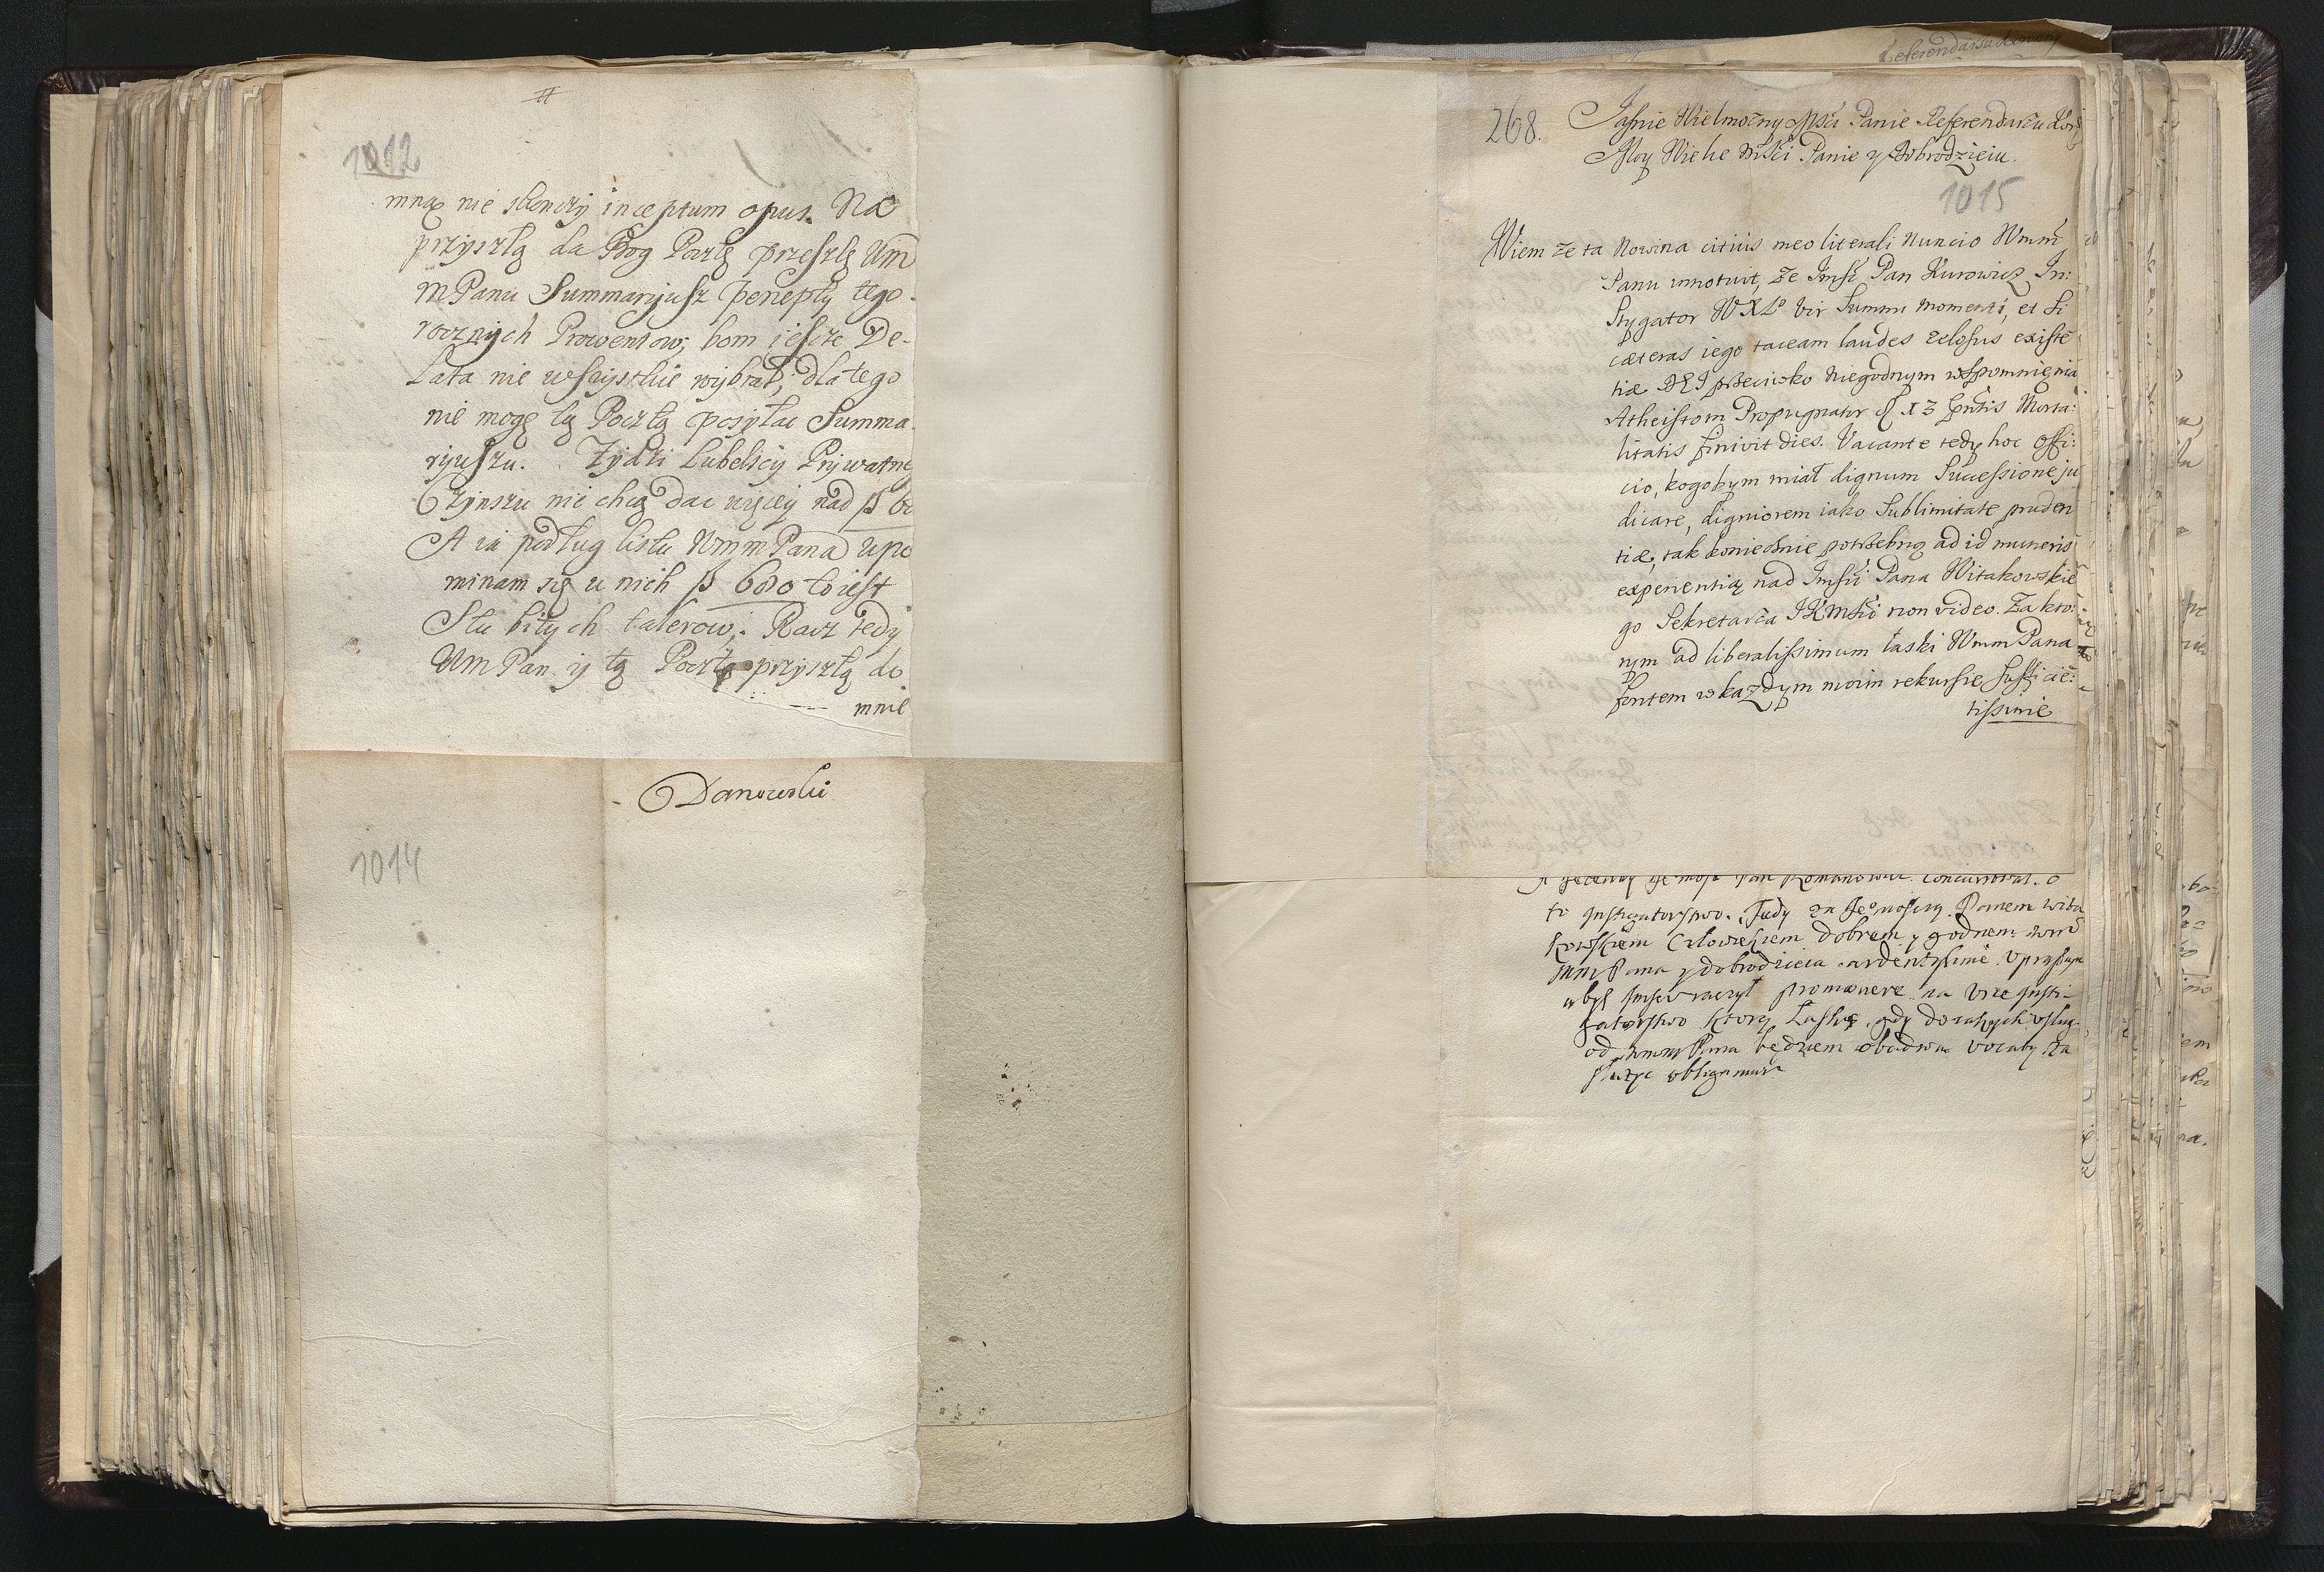 1012
mnąx nie skonczy inceptum opus. Na
przyszłą da Bog Pocztę przeszlę Um
mPanu Summaryusz penepły tego-
rocznych Prowentow; bom ieszcze De-
Lata nie wszystkie wybrał; dlatego
nie mogę tą Pocztą posyłac Summa.
ryuszu. Zydzi Lubelscy Prywatne
Czynszu nie chcą dac więcy nad ꞵ 60
A ia podług listu WmmPana upo
minam się u nich ꞵ 680 to iest
Stu bitych talerow; Racz tedy
UmPan y tą Pocztą przyszłą do
mnie
Danowski
1014
268.
Jasnie Wielmożny Mści Panie Referendarzu Kor;
Moy Wielce Mści Panie y Dobrodzieiu.
1015
Wiem że ta Nowina citius meo literali Nuncio Wmm
Panu innotuit, że Jmść Pan Kurowicz In:
stygator WXLo Vir Summi Momenti, et si
cæteras iego taceam laudes zelosus existē
tiæ DEI przeciwko Niegodnym wspomnienia
Atheistom Propugnator
litatis finivit dies. Vacante tedy hoc offi:
cio, kogobym miał dignum Successione ju
dicare, digniorem iako Sublimitate pruden
tiæ, tak koniecznie potrzebną ad id muneris
experientią nad Jmści Pana Witakowskie
go Sekretarza JKMści non video. Za kto:
rym ad liberalissimum łaski WmmPana
fontem w każdym moim rekursie sufficiē:
tissime
Pan Romanowic concurrował o
to instigatorstwo. Tedy za Jeomością Panem Wita
kowskiem Człowiekiem dobrem y godnem wm
mmPana y dobrodzieia ardentissime upraszam
abyś raczył promovere na Vice insti-
gatorstwo ktorą Łaskę gdy do usług
od wmmPana będziem obadwa
służyc obligamur